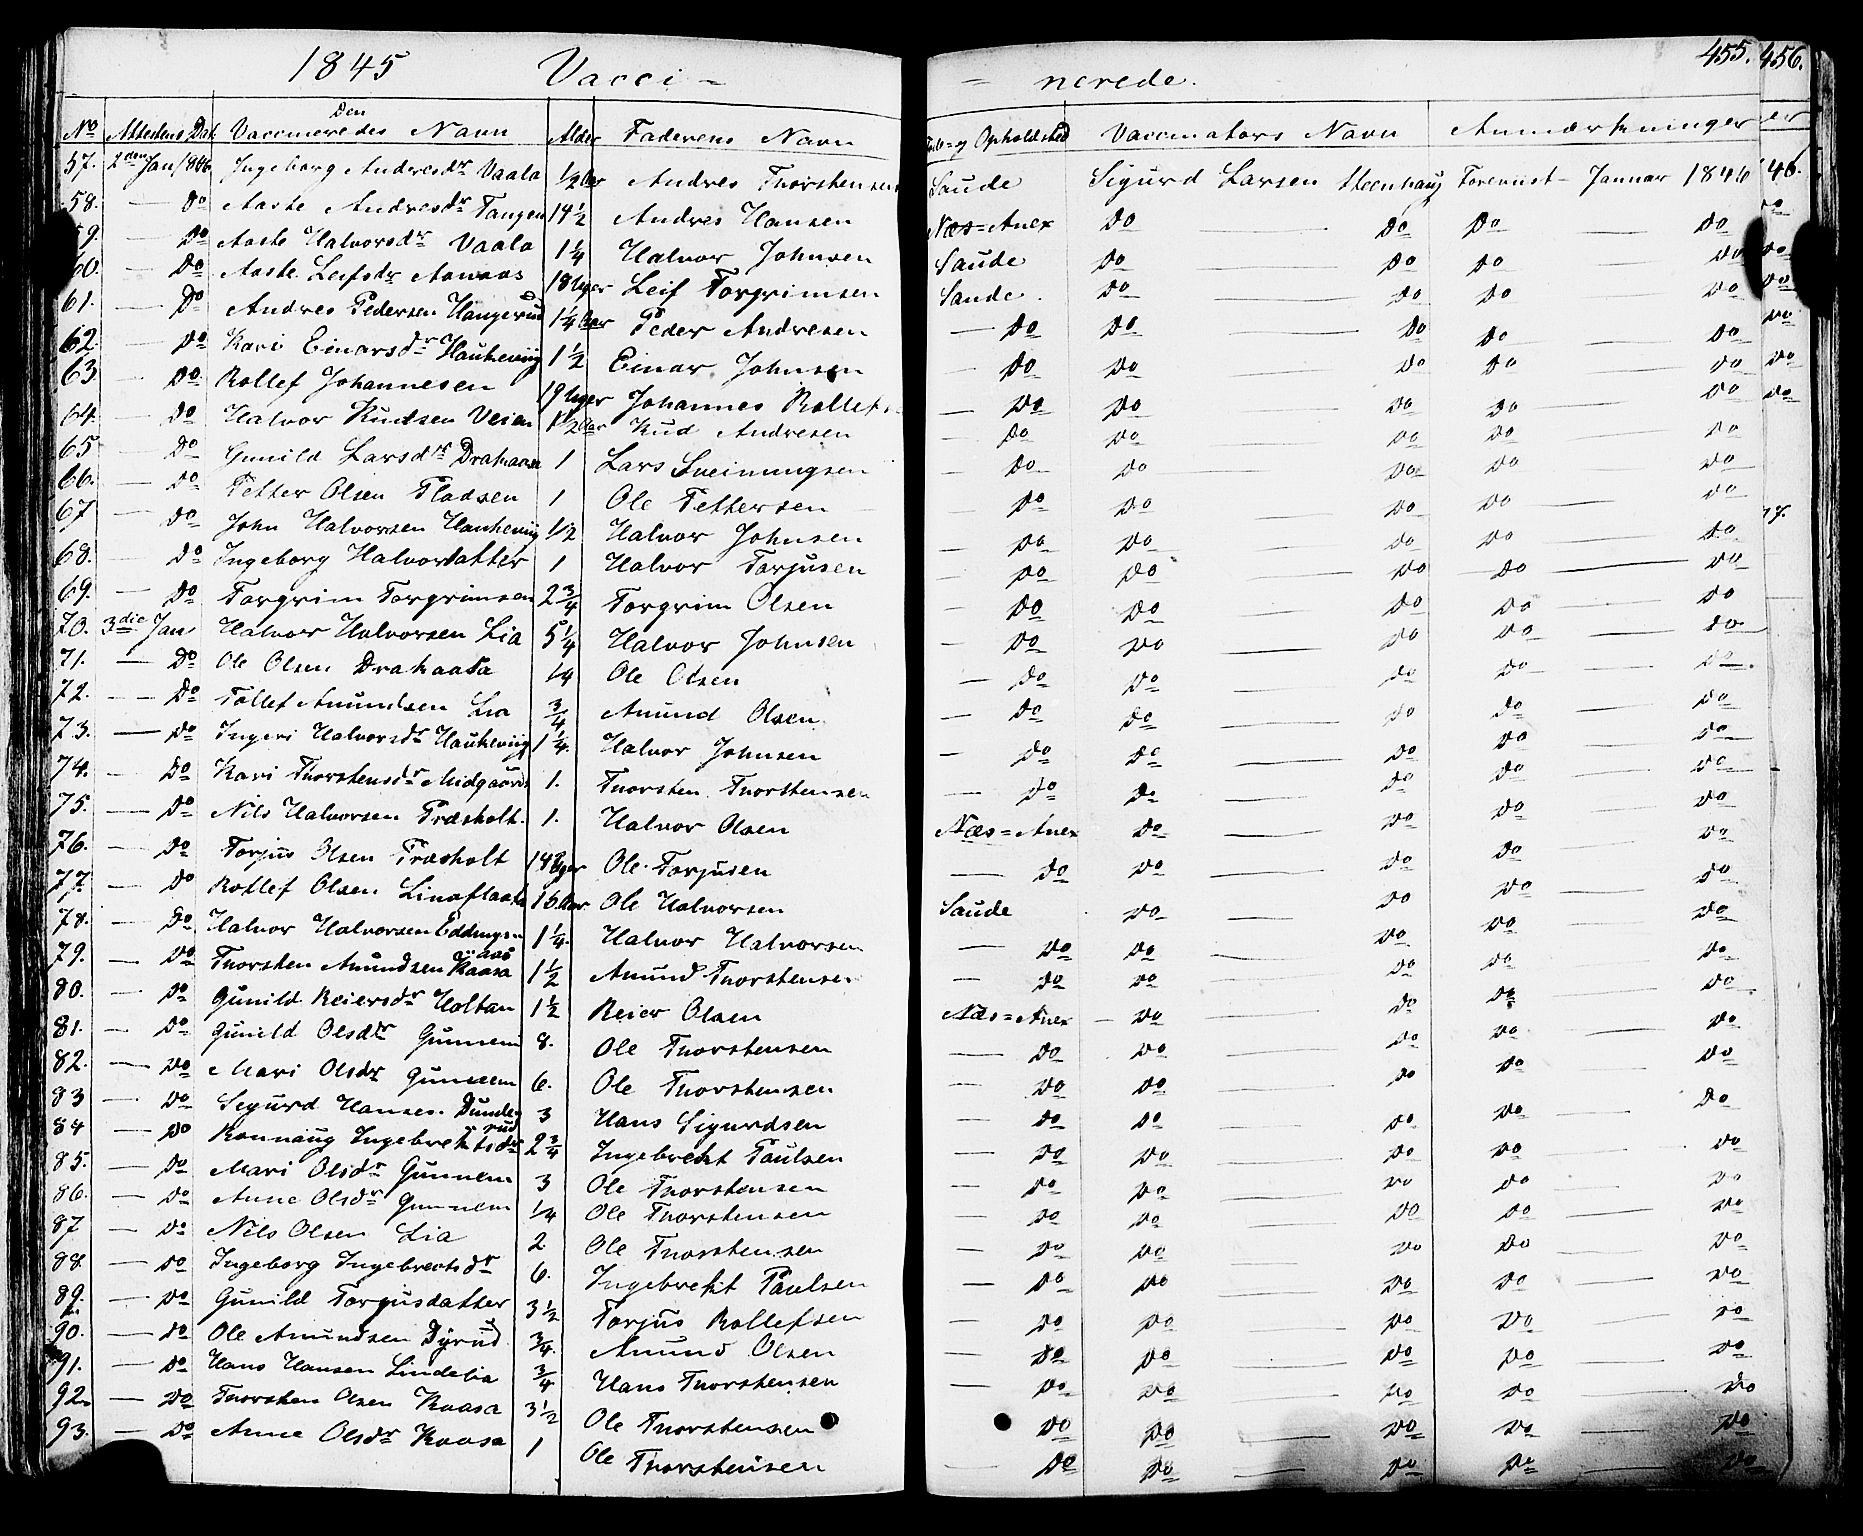 1845 Vacci- = nerede. 455. 456.
No Attestens Dat. Den Vaccineredes Navn Alder Faderens Navn Føde= og Opholdsted Vaccinators Navn Anmærkninger
57. 2den Jan/1846 Ingeborg Andresdr Vaala 1/2 Aar Andres Thorstensen Saude Sigurd Larsen Steenhaug Foreviist - Januar 1846
58. — Do Aaste Andresdr Tangen 14 1/2 Andres Hansen Næs=Anex Do — Do Do — Do
59. — Do Aaste Halvorsdr Vaala 1 1/4 Halvor Johnsen Saude Do — Do Do — Do
60. — Do Aaste Leifsdr 18 Uger Leif Torgrimsen Saude. Do — Do Do — Do
61. — Do Andres Pedersen Haugerud 1 1/4 Aar Peder Andresen — Do Do — Do Do — Do
62. — Do Kari Einarsdr Haukeviig 1 1/2 Einar Johnsen — Do Do — Do Do — Do
63 — Do. Rollef Johannesen 19 Uger Johannes Rollefs — Do Do — Do Do — Do
64. — Do Halvor Knudsen Veien 1 1/2 Aar Knud Andresen — Do Do — Do Do — Do
65 — Do Gunild Larsdr Drakaasa 1 Lars Sveinungsen — Do Do — Do Do — Do
66. — Do Petter Olsen Pladsen 1 Ole Pettersen — Do Do — Do Do — Do
67 — Do John Halvorsen Haukeviig 1/2 Halvor Johnsen — Do Do — Do Do — Do
68. — Do Ingeborg Halvordatter 1 Halvor Torjusen — Do Do — Do Do — Do
69. — Do Torgrim Torgrimsen 2 3/4 Torgrim Olsen — Do Do — Do Do — Do
70. 3die Jan Halvor Halvorsen Lia 5 1/4 Halvor Johnsen — Do Do — Do Do — Do
71. — Do Ole Olsen Drakaasa 1/4 Ole Olsen — Do Do — Do Do — Do
72. — Do Tollef Amundsen Lia 3/4 Amund Olsen — Do Do — Do Do — Do
73. — Do Ingeri Halvorsdr Haukeviig 1 1/4. Halvor Johnsen — Do Do — Do Do — Do
74. — Do Kari Thorstensdr Midgaarden 1. Thorsten Thorstensen — Do Do — Do Do — Do
75. — Do Nils Halvorsen Træsholt. 1. Halvor Olsen Næs=Anex Do — Do Do — Do
76. — Do Torjus Olsen Træsholt 14 Uger Ole Torjusen — Do Do — Do Do — Do
77. — Do Rollef Olsen Linaflaata 16 Aar Ole Halvorsen Saude Do — Do Do — Do
78. — Do Halvor Halvorsen 1 1/4. Halvor Halvorsen — Do Do — Do Do — Do
79. — Do Thorsten Amundsen Kaasa 1 1/2 Amund Thorstensen — Do Do — Do Do — Do
80. — Do Gunild Reiersdr Holtan 1 1/2 Reier Olsen Næs=Anex — Do — Do Do — Do
81. — Do Gunild Olsdtr Gunnem 8. Ole Thorstensen — Do Do — Do Do — Do
82. — Do Mari Olsdr Gunnem 6. Ole Thorstensen — Do Do — Do Do — Do
83 — Do Sigurd Hansen Dunderud 3 Hans Sigurdsen — Do Do — Do Do — Do
84 — Do Rønnaug Ingebrektsdr 2 3/4 Ingebrekt Paulsen — Do Do — Do Do — Do
85. — Do Mari Olsdr Gunnem 3 Ole Thorstensen — Do Do — Do Do — Do
86. — Do Anne Olsdr Gunnem 1/4 Ole Thorstensen — Do Do — Do Do — Do
87 — Do Nils Olsen Lia 2 Ole Thorstensen — Do Do — Do Do — Do
88. — Do Ingeborg Ingebrectsdr 6. Ingebrekt Paulsen — Do Do — Do Do — Do
89. — Do Gunild Torgusdatter 3 1/2 Torjus Rollefsen — Do Do — Do Do — Do
90. — Do Ole Amundsen Dyrud 3/4. Amund Olsen — Do Do — Do Do — Do
91. — Do Hans Hansen Lindelia 3/4 Hans Thorstensen — Do Do — Do Do — Do
92. — Do Thorsten Olsen Kaasa 3 1/2 Ole Thorstensen — Do Do — Do Do — Do
93. — Do Anne Olsdr Kaasa 1 Ole Thorstensen — Do Do — Do Do — Do